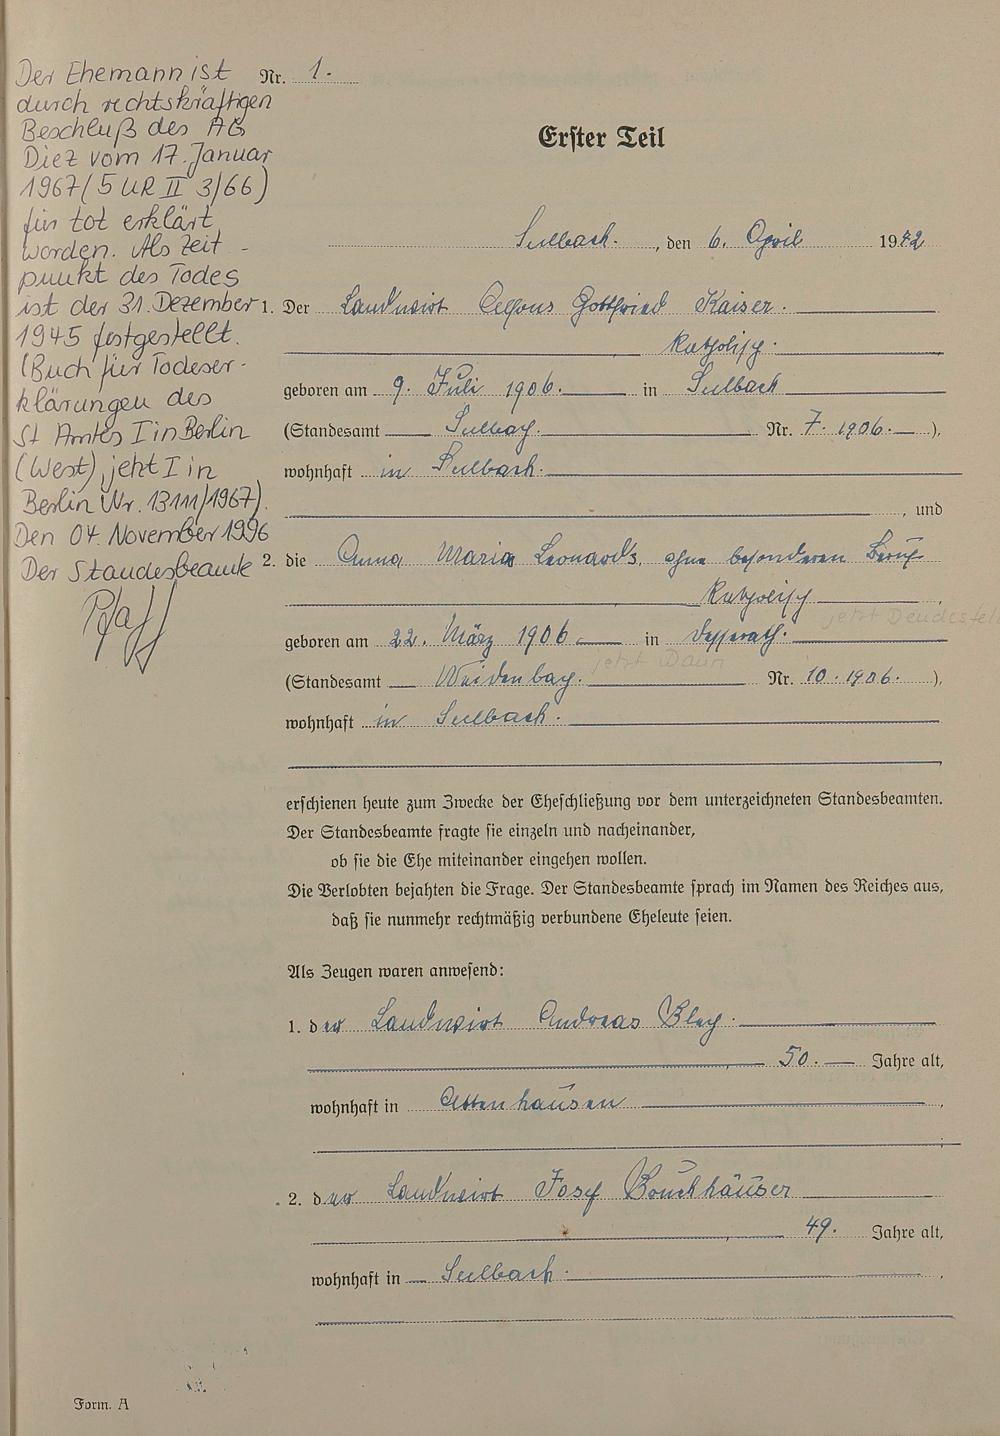 Der Ehemann ist
durch rechtskräftigen
Beschluß des AG
Diez vom 17. Januar
1967 (5 UR II 3/66)
für tot erklärt
worden. Als Zeit-
punkt des Todes
ist der 31. Dezember
1945 festgestellt.
(Buch für Todeser-
klärungen des
St Amtes I in Berlin
(West) jetzt I in
Berlin Nr. 13111/1967).
Den 04. November 1996
Der Standesbeamte
Pfaff
Nr. 1.
Erster Teil
Seelbach, den 6. April 1942
1. Der Landwirt Alfons Gottfried Kaiser.
Katholisch.
geboren am 9. Juli 1906. in Seelbach
(Standesamt Seelbach. Nr. 7. 1906.),
wohnhaft in Seelbach.
, und
2. die Anna Maria Leonards, ohne besonderen Beruf
Katholisch,
jetzt Deudesfeld
geboren am 22. März 1906 in Desserath.
jetzt Daun
(Standesamt Weidenbach. Nr. 10. 1906.),
wohnhaft in Seelbach.
erschienen heute zum Zwecke der Eheschließung vor dem unterzeichneten Standesbeamten.
Der Standesbeamte fragte sie einzeln und nacheinander,
ob sie die Ehe miteinander eingehen wollen.
Die Verlobten bejahten die Frage. Der Standesbeamte sprach im Namen des Reiches aus,
daß sie nunmehr rechtmäßig verbundene Eheleute seien.
Als Zeugen waren anwesend:
1. der Landwirt Andreas Bley.
50. Jahre alt,
wohnhaft in Attenhausen,
2. der Landwirt Josef Bruchhäuser
49. Jahre alt,
wohnhaft in Seelbach.,
Form. A